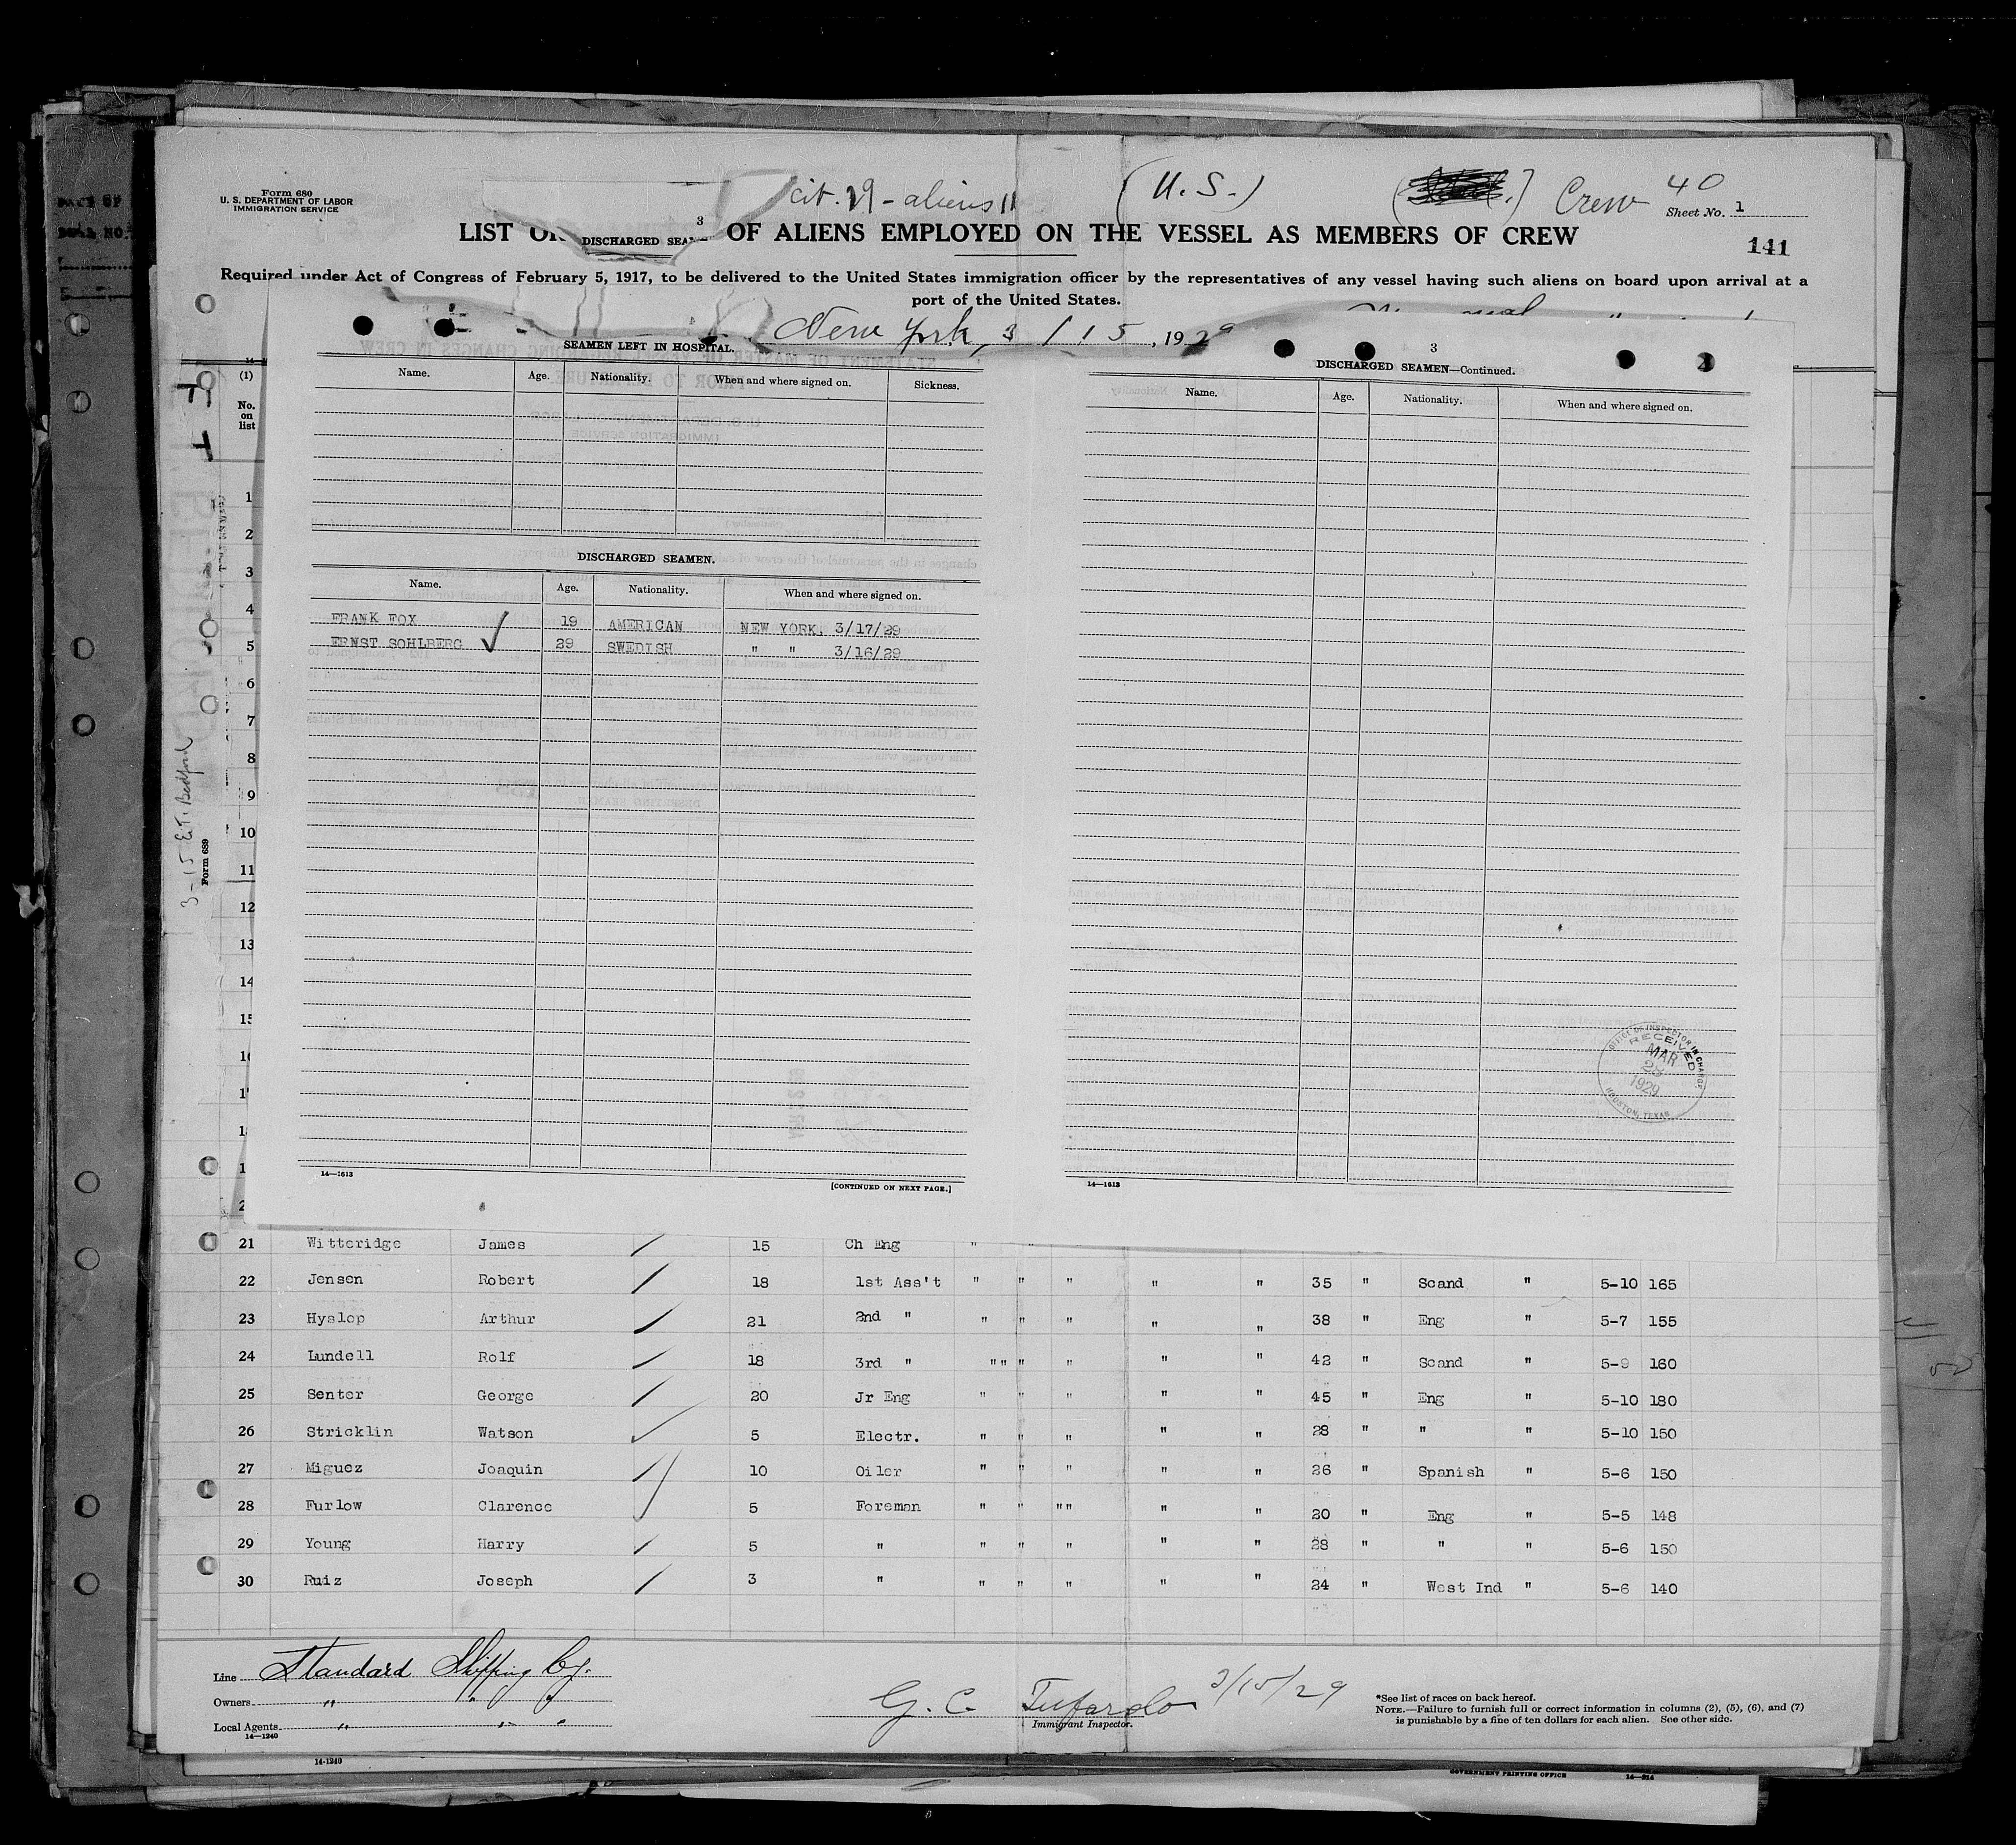 Form 680
U. S. DEPARTMENT OF LABOR
IMMIGRATION SERVICE
cit. 29 - aliens 11
(U. S.)
Crew 40
Sheet No. 1
3
DISCHARGED SEA
LIST OF ALIENS EMPLOYED ON THE VESSEL AS MEMBERS OF CREW
141
Required under Act of Congress of February 5, 1917, to be delivered to the United States immigration officer by the representatives of any vessel having such aliens on board upon arrival at a
port of the United States.
New York, 3/15, 1929
SEAMEN LEFT IN HOSPITAL.
Name. Age. Nationality. When and where signed on. Sickness.
DISCHARGED SEAMEN.
Name. Age. Nationality. When and where signed on.
FRANK FOX 19 AMERICAN NEW YORK, 3/17/29
ERNST SOHLBERG 29 SWEDISH " " 3/16/29
14—1613
[CONTINUED ON NEXT PAGE.]
3
DISCHARGED SEAMEN—Continued.
Name. Age. Nationality. When and where signed on.
OFFICE OF INSPECTOR IN CHARGE
RECEIVED
MAR
28
1929
HOUSTON, TEXAS
14—1613
(1)
No.
on
list
1
2
3
4
5
6
7
8
9
10
11
12
13
14
15
3-15 E.T. Bedford
Form 689
21 Witteridge James 15 Ch Eng " "
22 Jensen Robert 18 1st Ass't " " " " " 35 " Scand " 5-10 165
23 Hyslop Arthur 21 2nd " " " " " " 38 " Eng " 5-7 155
24 Lundell Rolf 18 3rd " " " " " " " 42 " Scand " 5-9 160
25 Senter George 20 Jr Eng " " " " " 45 " Eng " 5-10 180
26 Stricklin Watson 5 Electr. " " " " " 28 " " " 5-10 150
27 Miguez Joaquin 10 Oiler " " " " " 26 " Spanish " 5-6 150
28 Furlow Clarence 5 Foreman " " " " " " 20 " Eng " 5-5 148
29 Young Harry 5 " " " " " " 28 " " " 5-6 150
30 Ruiz Joseph 3 " " " " " " 24 " West Ind " 5-6 140
Line Standard Shipping Co.
Owners " " "
Local Agents " " "
14—1240
G. C. Tufarolo 3/15/29
Immigrant Inspector.
*See list of races on back hereof.
NOTE.—Failure to furnish full or correct information in columns (2), (5), (6), and (7)
is punishable by a fine of ten dollars for each alien. See other side.
14-1240
GOVERNMENT PRINTING OFFICE
14—214